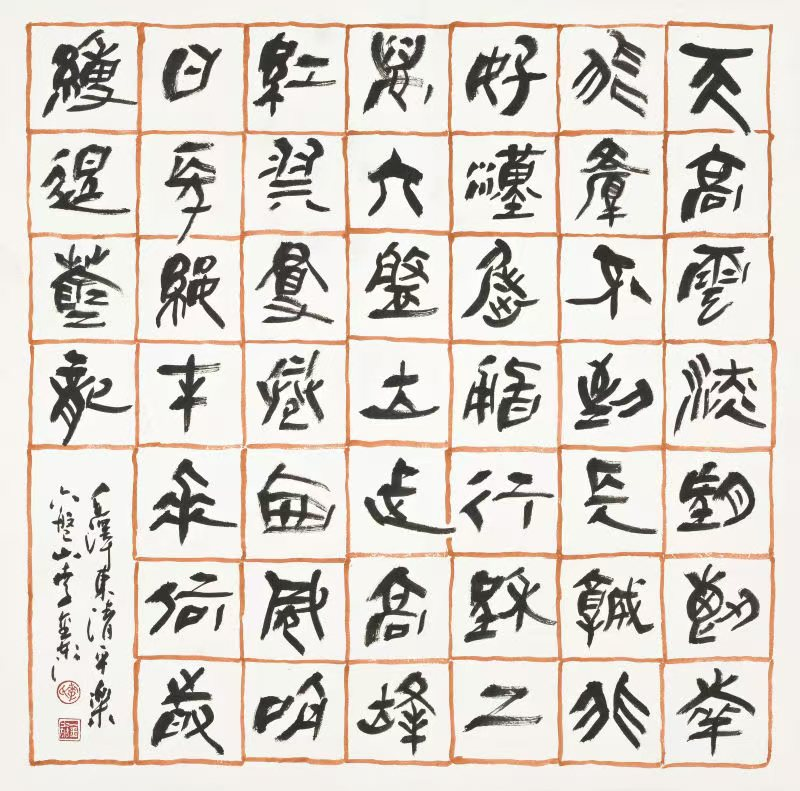 天高雲淡望斷南
飛雁不到長城非
好漢屈指行程二
萬六盤山上高峰
紅旗漫捲西風今
日長纓在手何時
縛住蒼龍
毛澤東清平樂
六盤山李